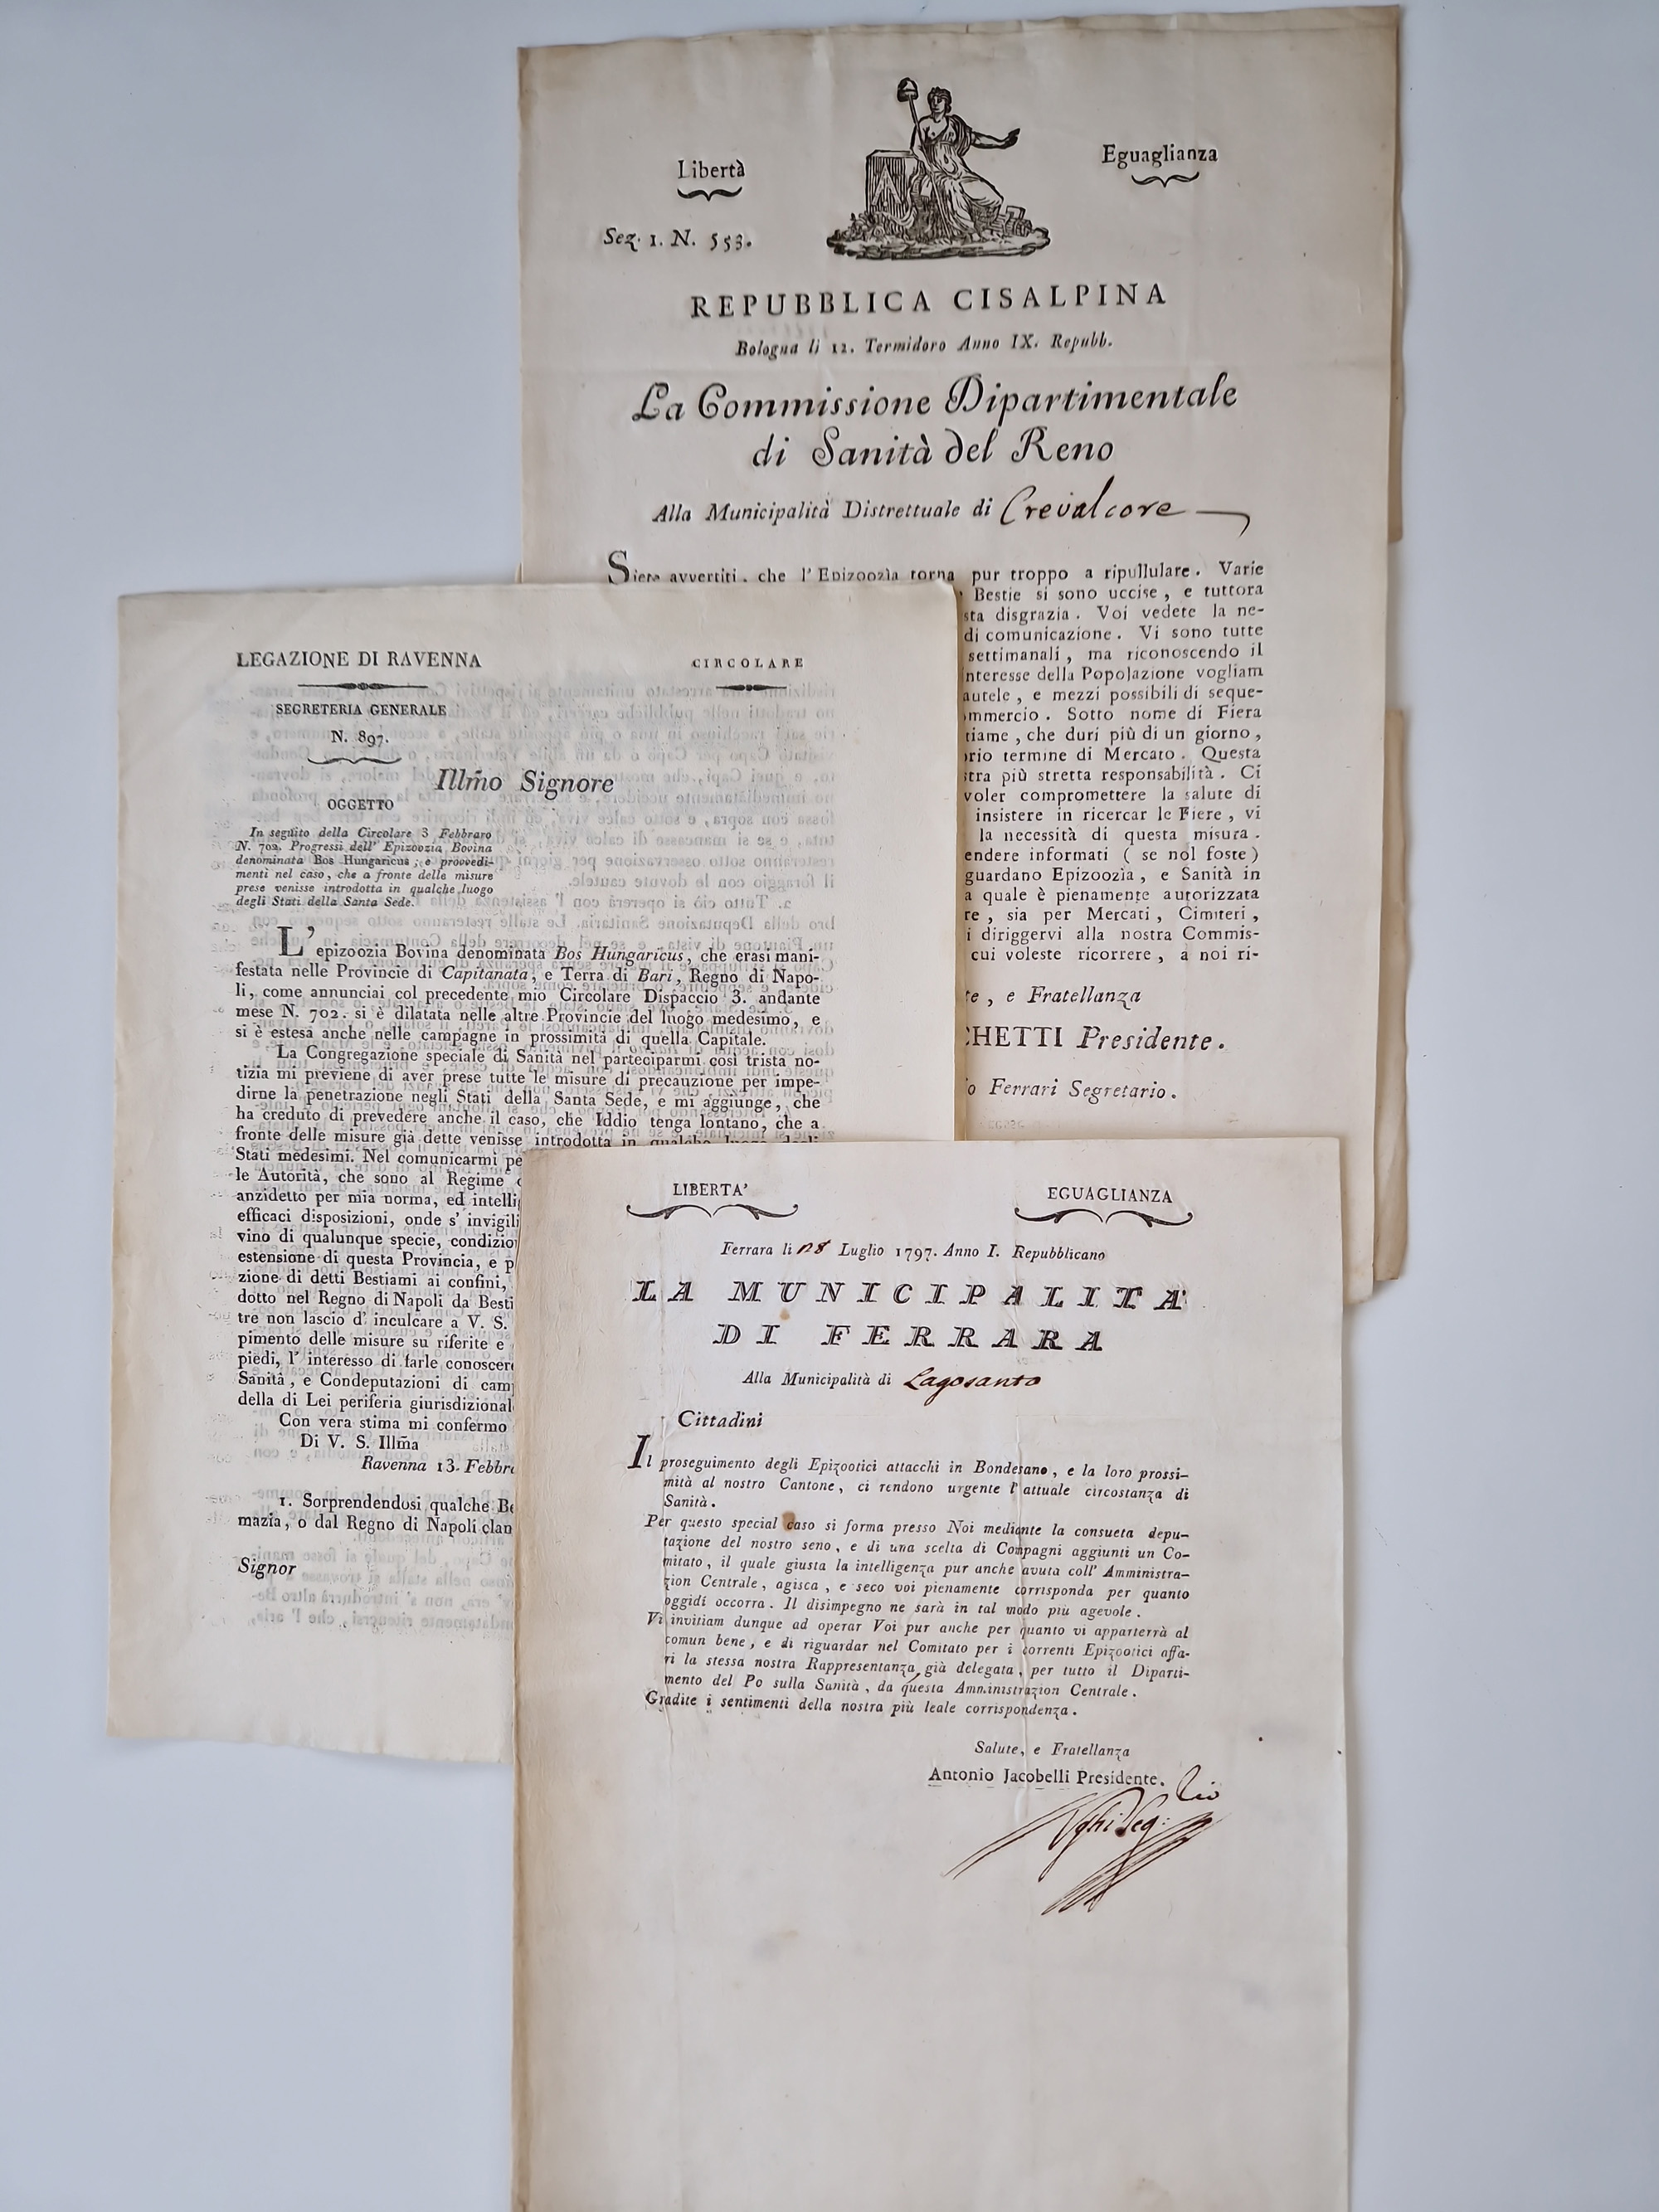 Libertà
Eguaglianza
Sez. 1. N. 553.
REPUBBLICA CISALPINA
Bologna li 12. Termidoro Anno IX. Repubb.
La Commissione Dipartimentale
di Sanità del Reno
Alla Municipalità Distrettuale di Crevalcore
Siete avvertiti, che l'Epizoozìa torna pur troppo a ripullulare. Varie
Bestie si sono uccise, e tuttora
sta disgrazia. Voi vedete la ne-
di comunicazione. Vi sono tutte
settimanali, ma riconoscendo il
nteresse della Popolazione vogliam
autele, e mezzi possibili di seque-
mmercio. Sotto nome di Fiera
tiame, che duri più di un giorno,
rio termine di Mercato. Questa
stra più stretta responsabilità. Ci
voler compromettere la salute di
insistere in ricercar le Fiere, vi
la necessità di questa misura.
endere informati ( se nol foste )
guardano Epizoozìa, e Sanità in
a quale è pienamente autorizzata
re, sia per Mercati, Cimiteri,
i diriggervi alla nostra Commis-
cui voleste ricorrere, a noi ri-
te, e Fratellanza
CHETTI Presidente.
o Ferrari Segretario.
LEGAZIONE DI RAVENNA
CIRCOLARE
SEGRETERIA GENERALE
N. 897.
Illm̃o Signore
OGGETTO
In seguito della Circolare 3 Febbraro
N. 702. Progressi dell' Epizoozia Bovina
denominata Bos Hungaricus; e provvedi-
menti nel caso, che a fronte delle misure
prese venisse introdotta in qualche luogo
degli Stati della Santa Sede.
L' epizoozia Bovina denominata Bos Hungaricus, che erasi mani-
festata nelle Provincie di Capitanata, e Terra di Bari, Regno di Napo-
li, come annunciai col precedente mio Circolare Dispaccio 3. andante
mese N. 702. si è dilatata nelle altre Provincie del luogo medesimo, e
si è estesa anche nelle campagne in prossimità di quella Capitale.
La Congregazione speciale di Sanità nel parteciparmi così trista no-
tizia mi previene di aver prese tutte le misure di precauzione per impe-
dirne la penetrazione negli Stati della Santa Sede, e mi aggiunge, che
ha creduto di prevedere anche il caso, che Iddio tenga lontano, che a
fronte delle misure già dette venisse introdotta in qualche luogo degli
Stati medesimi. Nel comunicarmi pe
le Autorità, che sono al Regime
anzidetto per mia norma, ed intelli
efficaci disposizioni, onde s' invigili
vino di qualunque specie, condizio
estensione di questa Provincia, e p
zione di detti Bestiami ai confini,
dotto nel Regno di Napoli da Besti
tre non lascio d' inculcare a V. S.
pimento delle misure su riferite e
piedi, l' interesso di farle conoscere
Sanità, e Condeputazioni di cam
della di Lei periferia giurisdizional
Con vera stima mi confermo
Di V. S. Illm̃a
Ravenna 13. Febbr
1. Sorprendendosi qualche Be
mazia, o dal Regno di Napoli clan
Signor
LIBERTA'
EGUAGLIANZA
Ferrara li 28 Luglio 1797. Anno I. Repubblicano
LA MUNICIPALITA'
DI FERRARA
Alla Municipalità di Lagosanto
Cittadini
Il proseguimento degli Epizootici attacchi in Bondesano, e la loro prossi-
mità al nostro Cantone, ci rendono urgente l' attuale circostanza di
Sanità.
Per questo special caso si forma presso Noi mediante la consueta depu-
tazione del nostro seno, e di una scelta di Compagni aggiunti un Co-
mitato, il quale giusta la intelligenza pur anche avuta coll' Amministra-
zion Centrale, agisca, e seco voi pienamente corrisponda per quanto
oggidì occorra. Il disimpegno ne sarà in tal modo più agevole.
Vi invitiam dunque ad operar Voi pur anche per quanto vi apparterrà al
comun bene, e di riguardar nel Comitato per i correnti Epizootici affa-
ri la stessa nostra Rappresentanza già delegata, per tutto il Diparti-
mento del Po sulla Sanità, da questa Amministrazion Centrale.
Gradite i sentimenti della nostra più leale corrispondenza.
Salute, e Fratellanza
Antonio Jacobelli Presidente.